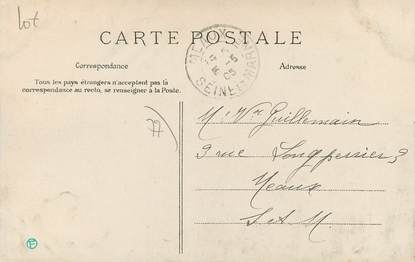 lot
CARTE POSTALE
Correspondance
Adresse
Tous les pays étrangers n'acceptent pas la
correspondance au recto, se renseigner à la Poste.
MEAUX
SEINE-ET-MARNE
77
Guillemain
9 rue Longperrier
Meaux
S et M